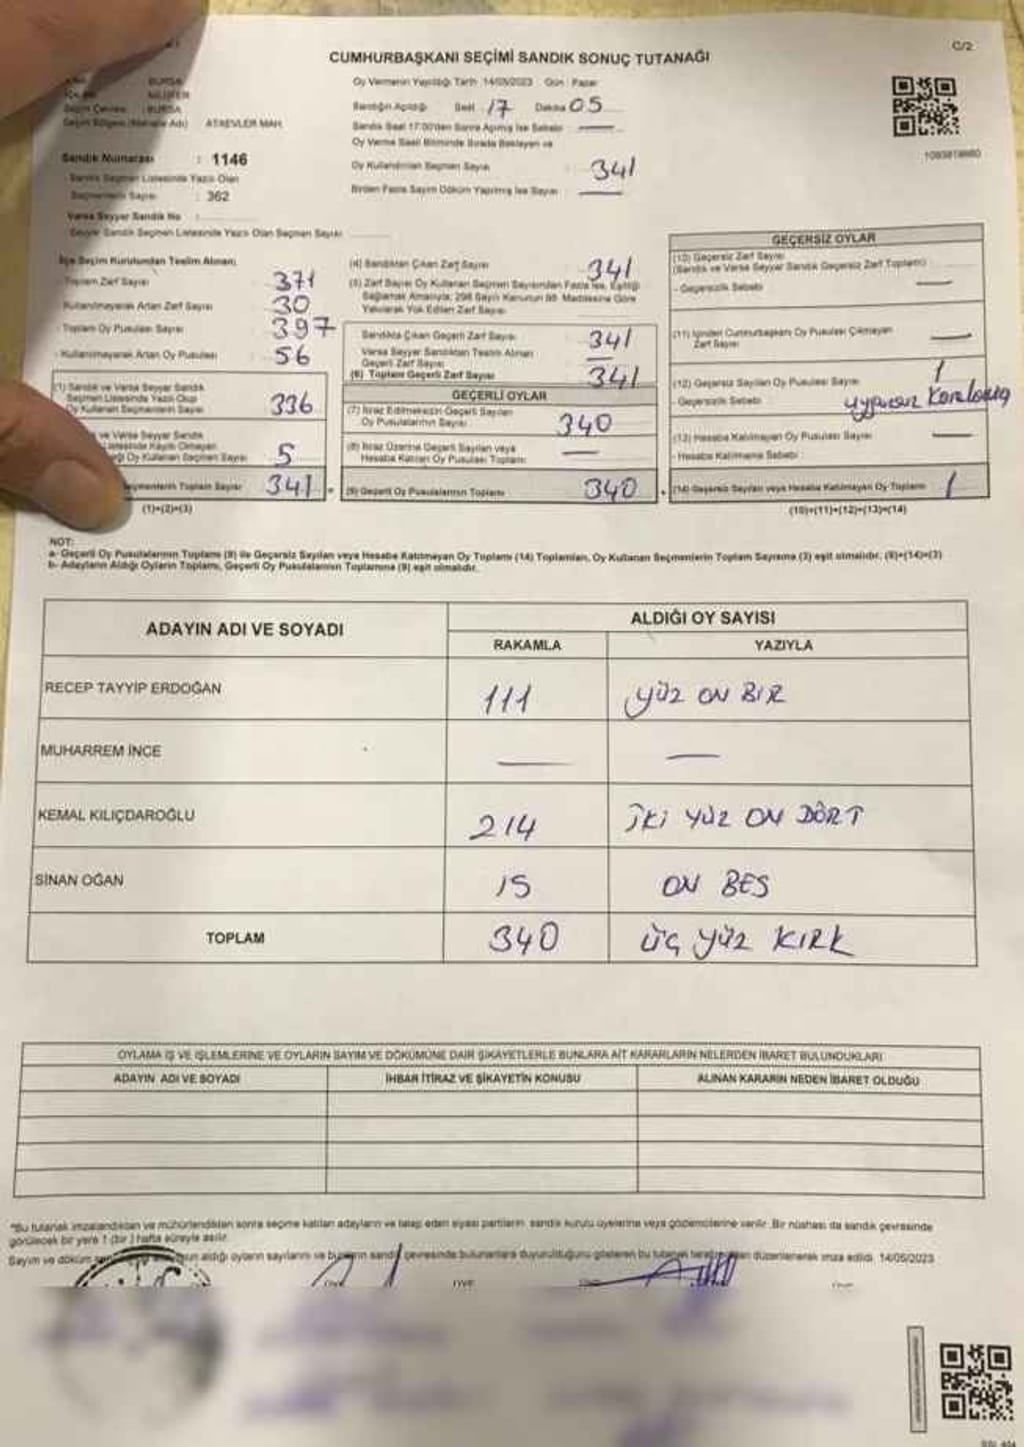 C/2
CUMHURBAŞKANI SEÇİMİ SANDIK SONUÇ TUTANAĞI
BURSA
NİLÜFER
Seçim Çevresi : BURSA
Seçim Bölgesi (Mahalle Adı) ATAEVLER MAH.
Sandık Numarası : 1146
Sandık Seçmen Listesinde Yazılı Olan
Seçmenlerin Sayısı : 362
Varsa Seyyar Sandık No :
Seyyar Sandık Seçmen Listesinde Yazılı Olan Seçmen Sayısı
Oy Vermenin Yapıldığı Tarih 14/05/2023 Gün : Pazar
Sandığın Açıldığı Saat 17 Dakika 05
Sandık Saat 17:00'den Sonra Açılmış İse Sebebi —
Oy Verme Saati Bitiminde Sırada Bekleyen ve
Oy Kullandırılan Seçmen Sayısı 341
Birden Fazla Sayım Döküm Yapılmış İse Sayısı —
İlçe Seçim Kurulundan Teslim Alınan;
Toplam Zarf Sayısı 371
Kullanılmayarak Artan Zarf Sayısı 30
Toplam Oy Pusulası Sayısı 397
Kullanılmayarak Artan Oy Pusulası 56
(1) Sandık ve Varsa Seyyar Sandık
Seçmen Listesinde Yazılı Olup
Oy Kullanan Seçmenlerin Sayısı 336
ve Varsa Seyyar Sandık
Listesinde Kayıtlı Olmayan
Oy Kullanan Seçmen Sayısı 5
Seçmenlerin Toplam Sayısı 341 =
(1)+(2)=(3)
(4) Sandıktan Çıkan Zarf Sayısı 341
(5) Zarf Sayısı Oy Kullanan Seçmen Sayısından Fazla İse, Eşitliği
Sağlamak Amacıyla, 298 Sayılı Kanunun 98. Maddesine Göre
Yakılarak Yok Edilen Zarf Sayısı
Sandıkta Çıkan Geçerli Zarf Sayısı 341
Varsa Seyyar Sandıktan Teslim Alınan
Geçerli Zarf Sayısı —
(6) Toplam Geçerli Zarf Sayısı 341
GEÇERLİ OYLAR
(7) İtiraz Edilmeksizin Geçerli Sayılan
Oy Pusulalarının Sayısı 340
(8) İtiraz Üzerine Geçerli Sayılan veya
Hesaba Katılan Oy Pusulası Toplamı —
(9) Geçerli Oy Pusulalarının Toplamı 340 +
GEÇERSİZ OYLAR
(10) Geçersiz Zarf Sayısı
(Sandık ve Varsa Seyyar Sandık Geçersiz Zarf Toplamı)
- Geçersizlik Sebebi —
(11) İçinden Cumhurbaşkanı Oy Pusulası Çıkmayan
Zarf Sayısı —
(12) Geçersiz Sayılan Oy Pusulası Sayısı 1
- Geçersizlik Sebebi uygunsuz
(13) Hesaba Katılmayan Oy Pusulası Sayısı —
- Hesaba Katılmama Sebebi
(14) Geçersiz Sayılan veya Hesaba Katılmayan Oy Toplamı 1
(10)+(11)+(12)+(13)=(14)
NOT:
a- Geçerli Oy Pusulalarının Toplamı (9) ile Geçersiz Sayılan veya Hesaba Katılmayan Oy Toplamı (14) Toplamları, Oy Kullanan Seçmenlerin Toplam Sayısına (3) eşit olmalıdır. (9)+(14)=(3)
b- Adayların Aldığı Oyların Toplamı, Geçerli Oy Pusulalarının Toplamına (9) eşit olmalıdır.
ADAYIN ADI VE SOYADI ALDIĞI OY SAYISI
RAKAMLA YAZIYLA
RECEP TAYYİP ERDOĞAN 111 YÜZ ON BİR
MUHARREM İNCE — —
KEMAL KILIÇDAROĞLU 214 İKİ YÜZ ON DÖRT
SİNAN OĞAN 15 ON BEŞ
TOPLAM 340 ÜÇ YÜZ KIRK
OYLAMA İŞ VE İŞLEMLERİNE VE OYLARIN SAYIM VE DÖKÜMÜNE DAİR ŞİKAYETLERLE BUNLARA AİT KARARLARIN NELERDEN İBARET BULUNDUKLARI
ADAYIN ADI VE SOYADI İHBAR İTİRAZ VE ŞİKAYETİN KONUSU ALINAN KARARIN NEDEN İBARET OLDUĞU
*Bu tutanak imzalandıktan ve mühürlendikten sonra seçime katılan adayların ve talep eden siyasi partilerin sandık kurulu üyelerine veya gözlemcilerine verilir. Bir nüshası da sandık çevresinde
görülecek bir yere 1 (bir) hafta süreyle asılır.
Sayım ve döküm aldığı oyların sayılarını ve bunların sandık çevresinde bulunanlara duyurulduğunu gösteren bu tutanak düzenlenerek imza edildi. 14/05/2023